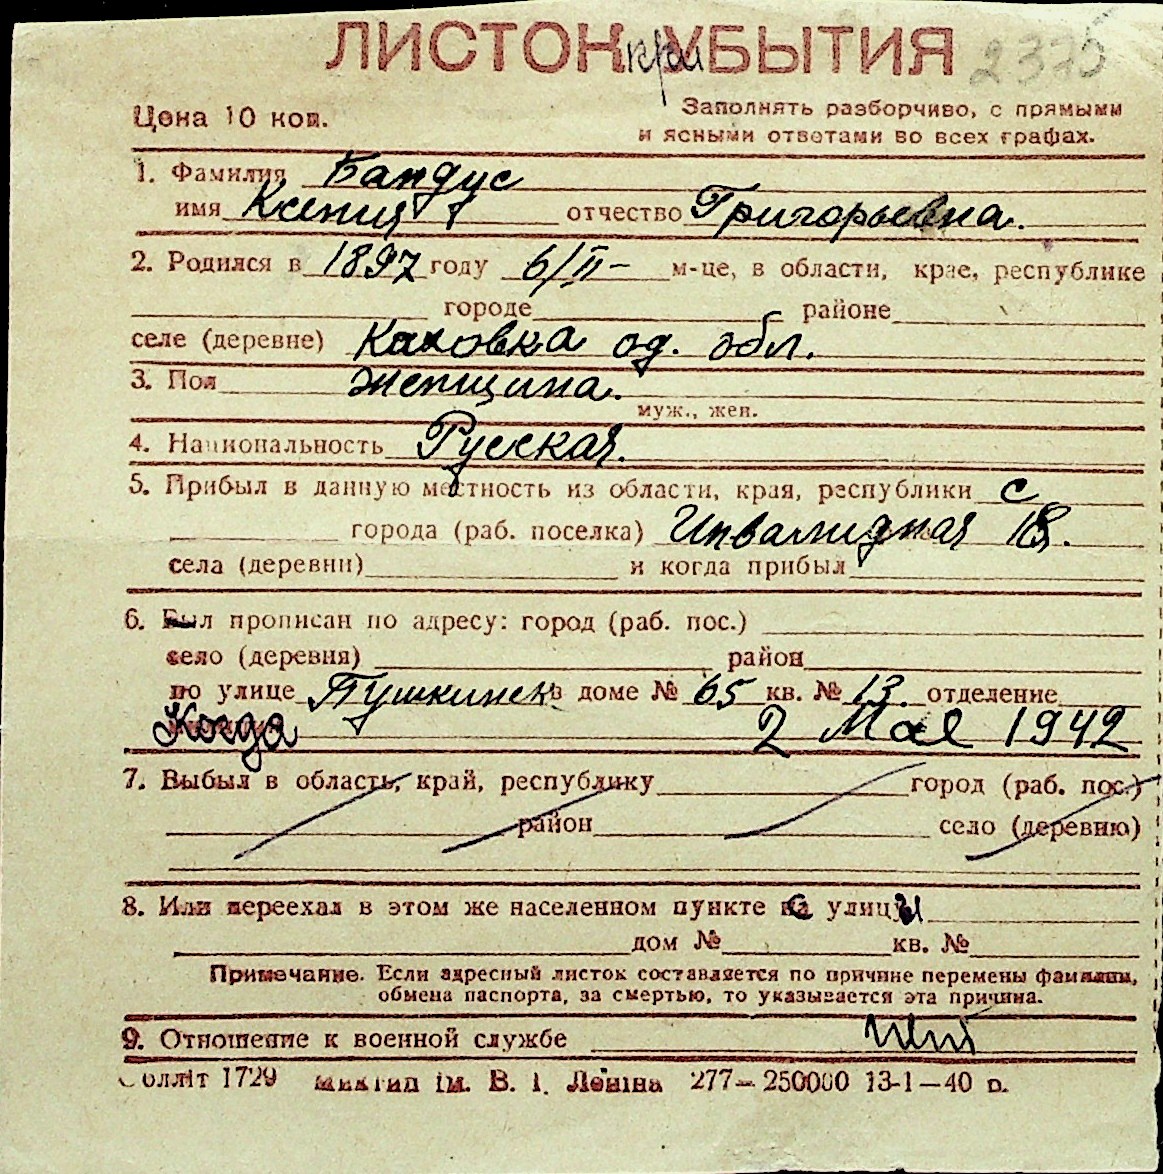 ЛИСТОК при УБЫТИЯ 2375
Цена 10 коп.
Заполнять разборчиво, с прямыми
и ясными ответами во всех графах.
1. Фамилия Бандус
имя Ксения отчество Григорьевна.
2. Родился в 1897 году 6/II- м-це, в области, крае, республике
городе районе
селе (деревне) Каховка од. обл.
3. Пол женщина.
муж., жен.
4. Национальность Русская.
5. Прибыл в данную местность из области, края, республики с
города (раб. поселка) Инвалидная 18.
села (деревни) и когда прибыл
6. Был прописан по адресу: город (раб. пос.)
село (деревня) район
по улице Пушкинск в доме № 65 кв. № 13. отделение
Когда 2 Мае 1942
7. Выбыл в область, край, республику город (раб. пос.)
район село (деревню)
8. Или переехал в этом же населенном пункте с улицы
дом № кв. №
Примечание. Если адресный листок составляется по причине перемены фамилии,
обмена паспорта, за смертью, то указывается эта причина.
9. Отношение к военной службе
Облліт 1729 Миктип ім. В. І. Леніна 277—250000 13-1—40 р.